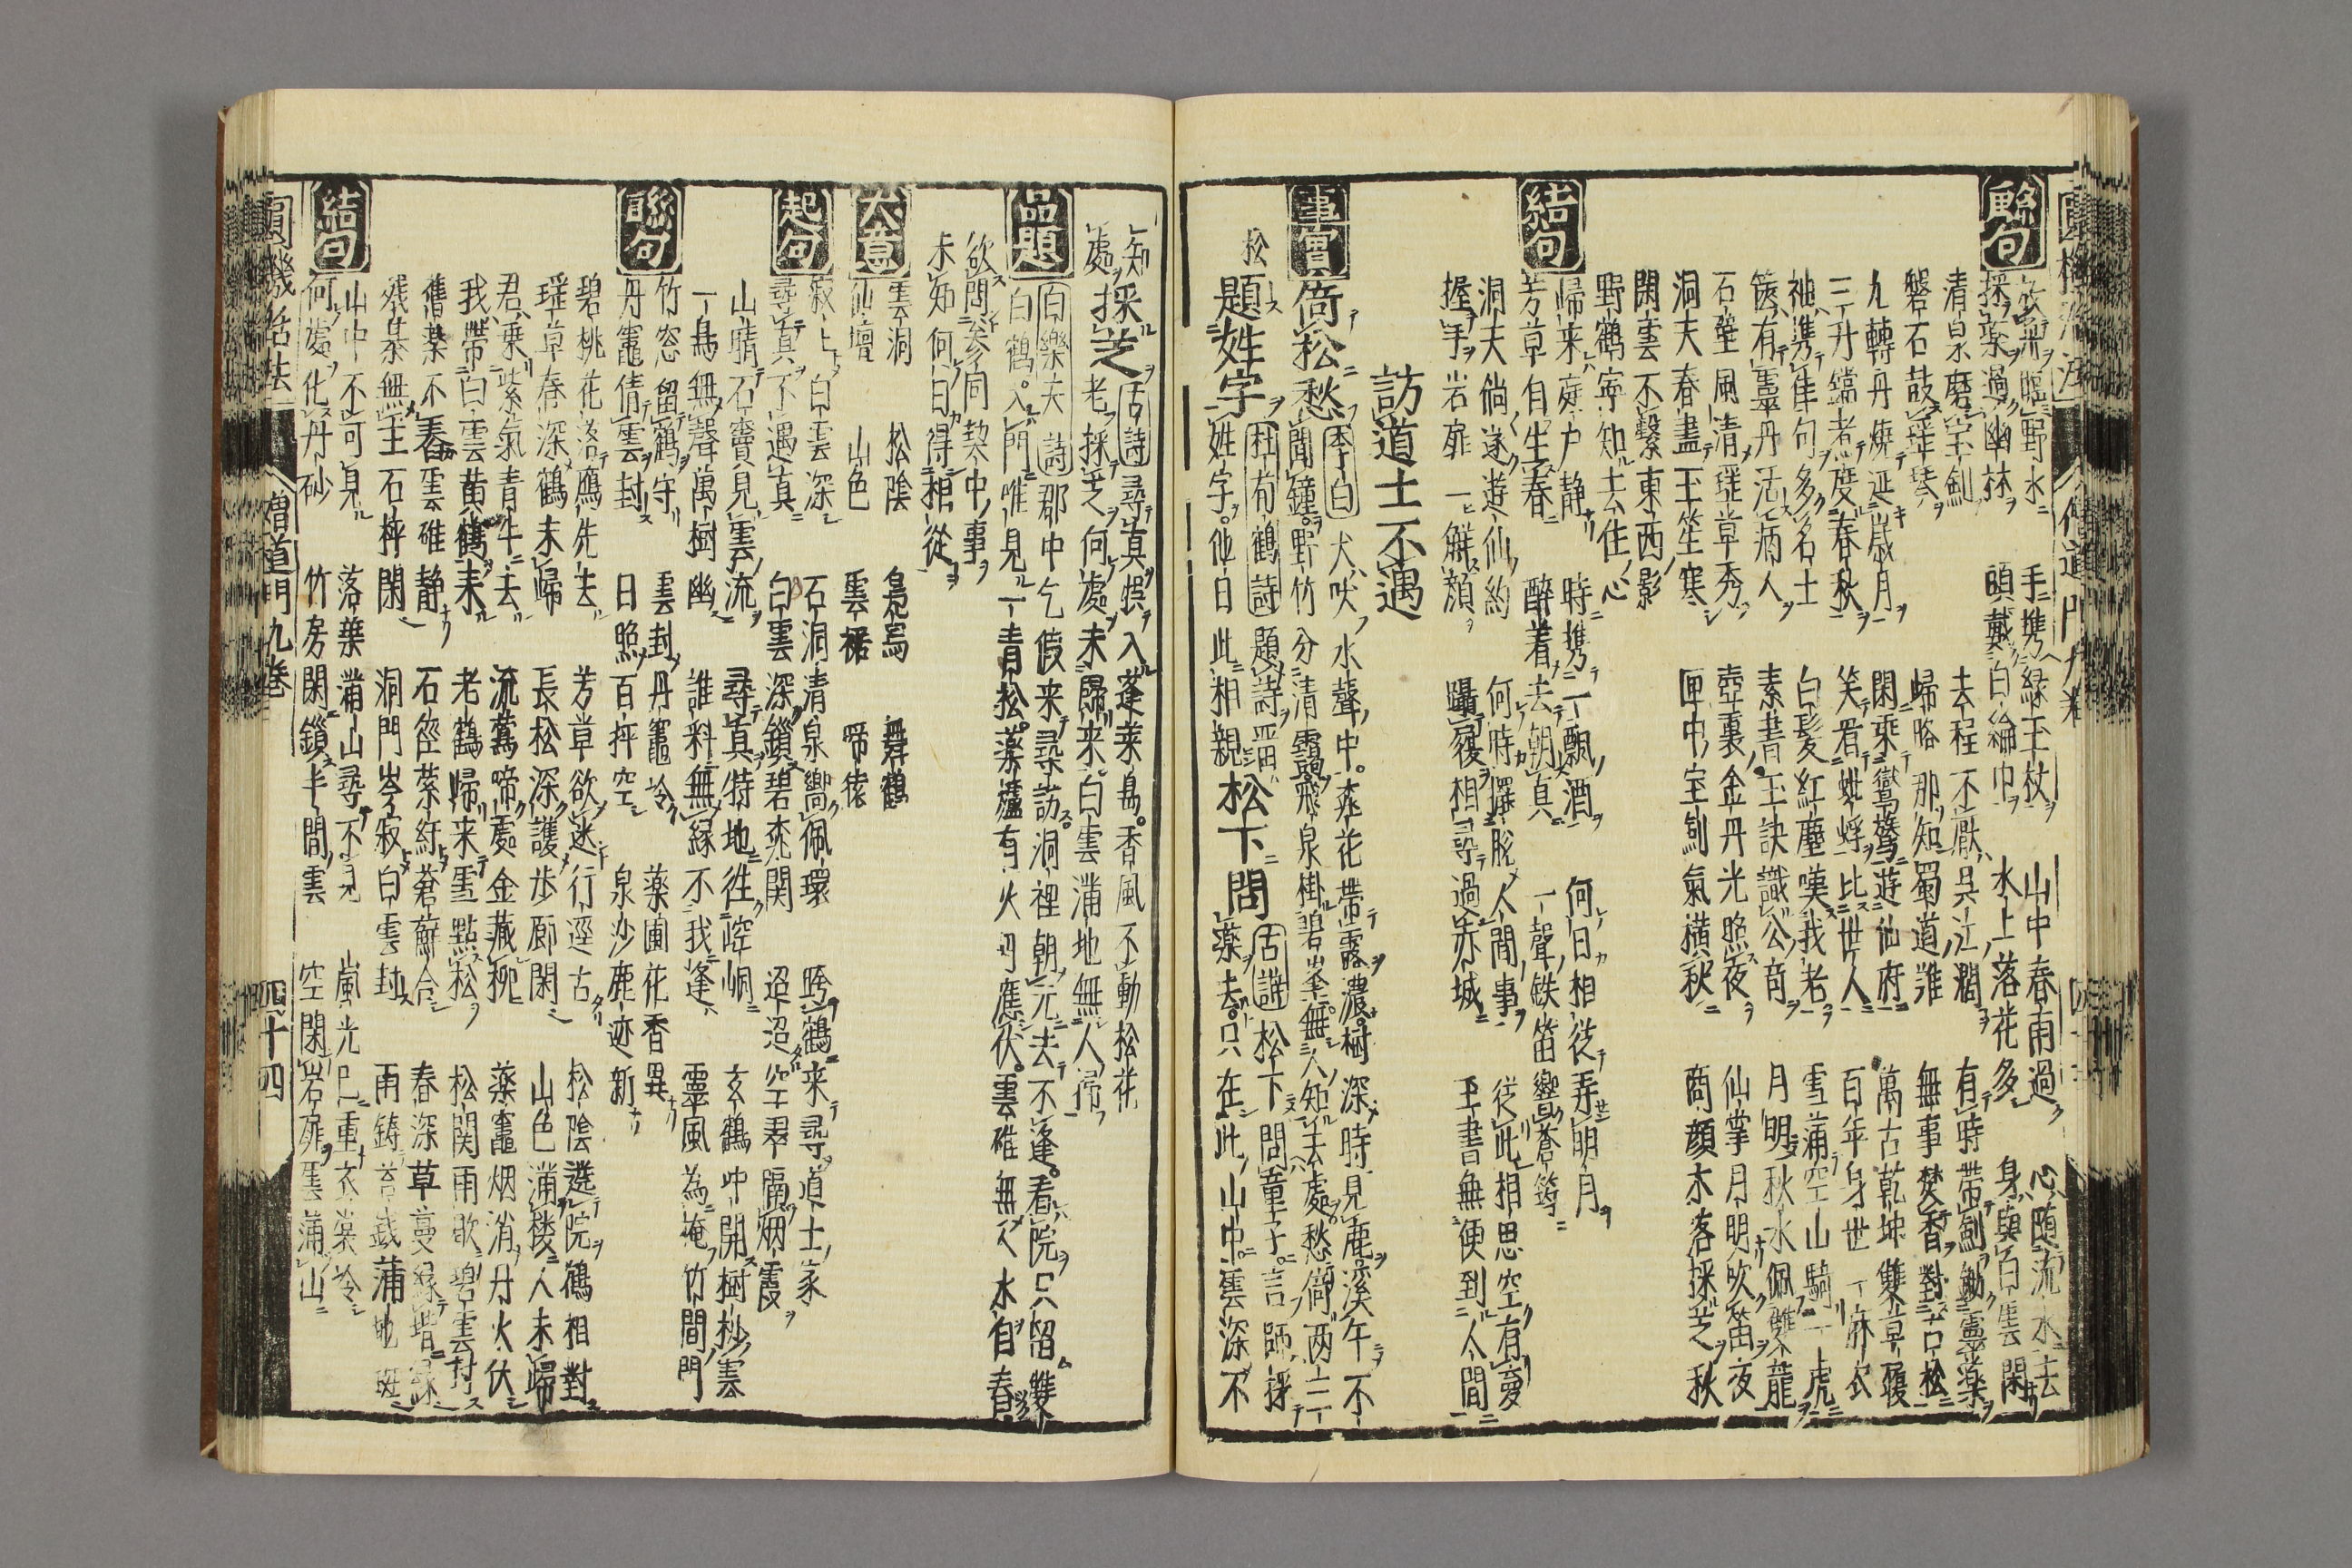 聯句
放鶴臨野水 手携緑玉杖 山中春雨過 心随流水去
採薬過幽林 頭戴白綸巾 水上落花多 身與白雲閑
清泉磨宝劍 去程不厭呉江濶 有時帶劍鋤霊薬
磐石鼓瑶琴 帰略那知蜀道難 無事焚香對古松
九轉丹燒延歳月 閑乗鸞鶩遊仙府 萬古乾坤雙草履
三丹鐺煮度春秋 笑看蜉蝣比世人 百年身世一麻衣
袖携隹句多名士 白髪紅塵嘆我老 雪満空山騎一虎
篋有霊丹活病人 素書玉訣識公奇 月明秋水佩雙龍
石壁風清瑶草秀 壺裏金丹光照夜 仙掌月明吹笛夜
洞天春盡玉笙寒 匣中宝劍氣横秋 商顔木落採芝秋
閑雲不繋東西影
野鶴寧知去住心
結句
帰来庭户静 時携一瓢酒 何日相従弄明月
芳草自生春 醉着去朝真 一聲鉄笛響蒼筠
洞天倘遂遊仙約 何時擺脱人間事 従此相思空有夢
握手岩扉一觧顔 躡履相尋過赤城 玉書無便到人間
訪道士不遇
事實
倚松愁 李白 犬吠水聲中。桃花帶露濃。樹深時見鹿。溪午不
聞鐘。野竹分清靄。飛泉掛碧峯。無人知去處。愁倚両三
松
題姓字 杜荀鶴詩 題詩畱
姓字。他日此相親
松下問 古詩 松下問童子。言師採
薬去。只在此山中。雲深不
知
處
採芝 古詩 尋真悞入蓬莱島。香風不動松花
老。採芝何處未歸来。白雲満地無人掃
品題
白樂天詩 郡中乞假来尋訪。洞裡朝元去不逢。看院只留雙
白鶴。入門唯見一青松。薬爐有火丹應伏。雲碓無人水自舂
欲問參同契中事
未知何日得相從
大意
雲洞 松陰 鳧舄 舞鶴
仙壇 山色 雲裾 啼猿
起句
寂上白雲深 石洞清泉響佩環 跨鶴来尋道士家
尋真不遇真 白雲深鎖碧桃関 迢迢空翠隔烟霞
山晴石竇見雲流 尋真特地徃崆峒 玄鶴冲開樹杪雲
一鳥無聲萬樹幽 誰料無縁不我逢 靈風為掩竹間門
聯句
竹窓留鶴守 雲封丹竈冷 薬圃花香異
丹竈倩雲封 日照百抨空 泉沙鹿迹新
碧桃花落鷹先去 芳草欲迷行逕古 松陰遶院鶴相對
瑶草春深鶴未帰 長松深護歩廊閑 山色満楼人未帰
君乗紫氣青牛去 流鶯啼處金藏柳 薬竈烟消丹火伏
我帶白雲黄鶴来 老鶴帰来雪點松 松関雨歇碧雲封
舊薬不舂雲碓静 石徑縈紆蒼蘚合 春深草蔓縁堦緑
殘棊無主石枰閑 洞門岑寂白雲封 雨鋳苔錢満地斑
結句
山中不可見 落葉満山尋不見 嵐光已重衣裳冷
何處化丹砂 竹房閑鎖半間雲 空閉岩扉雲満山
圓機活法 増道門九巻 四十四